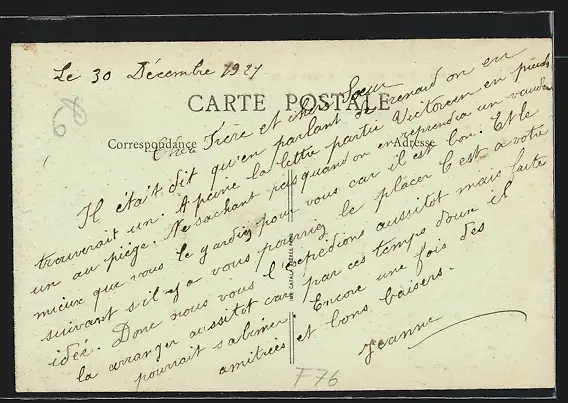 Le 30 Décembre 1927
68
CARTE POSTALE
Correspondance
Adresse
Cher Frère et chère Sœur
Il était dit qu'en parlant de renard on en
trouverait un. A peine la lettre partie Victorien en
un au piège. Ne sachant pas quand on en reprendra un
mieux que vous le gardiez pour vous car il est bon. Et le
suivant s'il y a vous pourriez le placer C'est a votre
idée. Donc nous vous l'expédions aussitot mais faite
la arranger aussitot car par ces temps doux il
pourrait s'abimer. Encore une fois des
amitiées et bons baisers.
Jeanne
F76